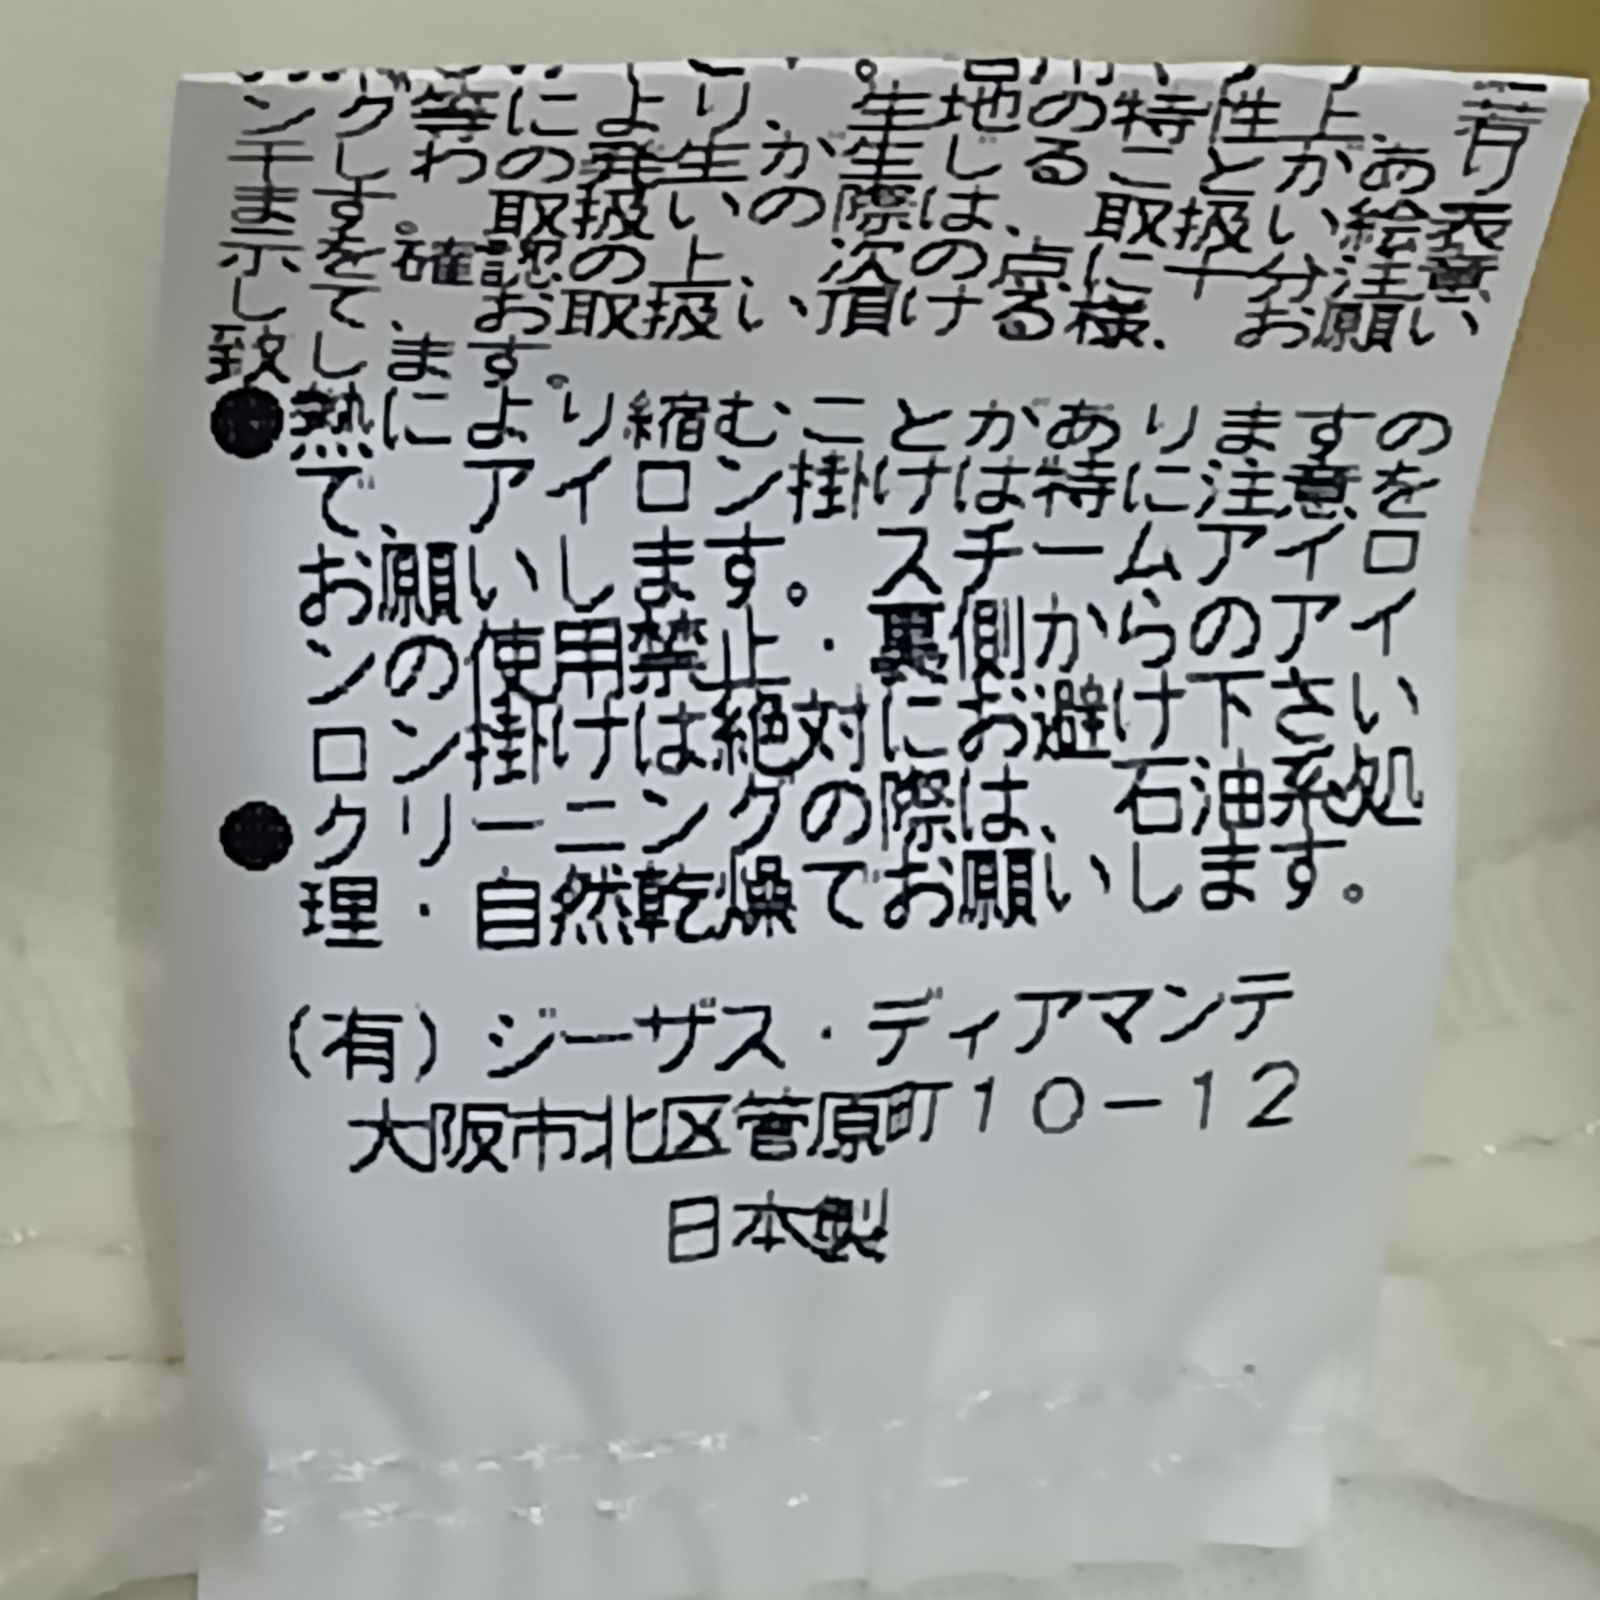 ング等により、生地の特性上、若
干しわの発生が生じることがあり
ます。取扱いの際は、取扱い絵表
示を確認の上、次の点に十分注意
して、お取扱い頂ける様、お願い
致します。
●熱により縮むことがありますの
で、アイロン掛けは特に注意を
お願いします。スチームアイロ
ンの使用禁止・裏側からのアイ
ロン掛けは絶対にお避け下さい
●クリーニングの際は、石油系処
理・自然乾燥でお願いします。
(有)ジーザス・ディアマンテ
大阪市北区菅原町10-12
日本製